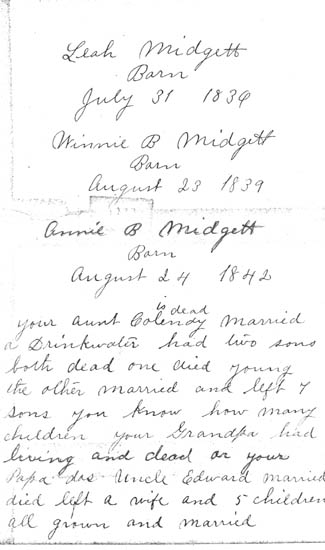 Leah Midgett
Born
July 31 1836
Winnie B Midgett
Born
August 23 1839
Annie B Midgett
Born
August 24 1842
is dead
your aunt Colendy married
a Drinkwater had two sons
both dead one died young
the other married and left 7
sons you know how many
children your Grandpa had
living and dead or your
Papa das Uncle Edward married
died left a wife and 5 children
all grown and married